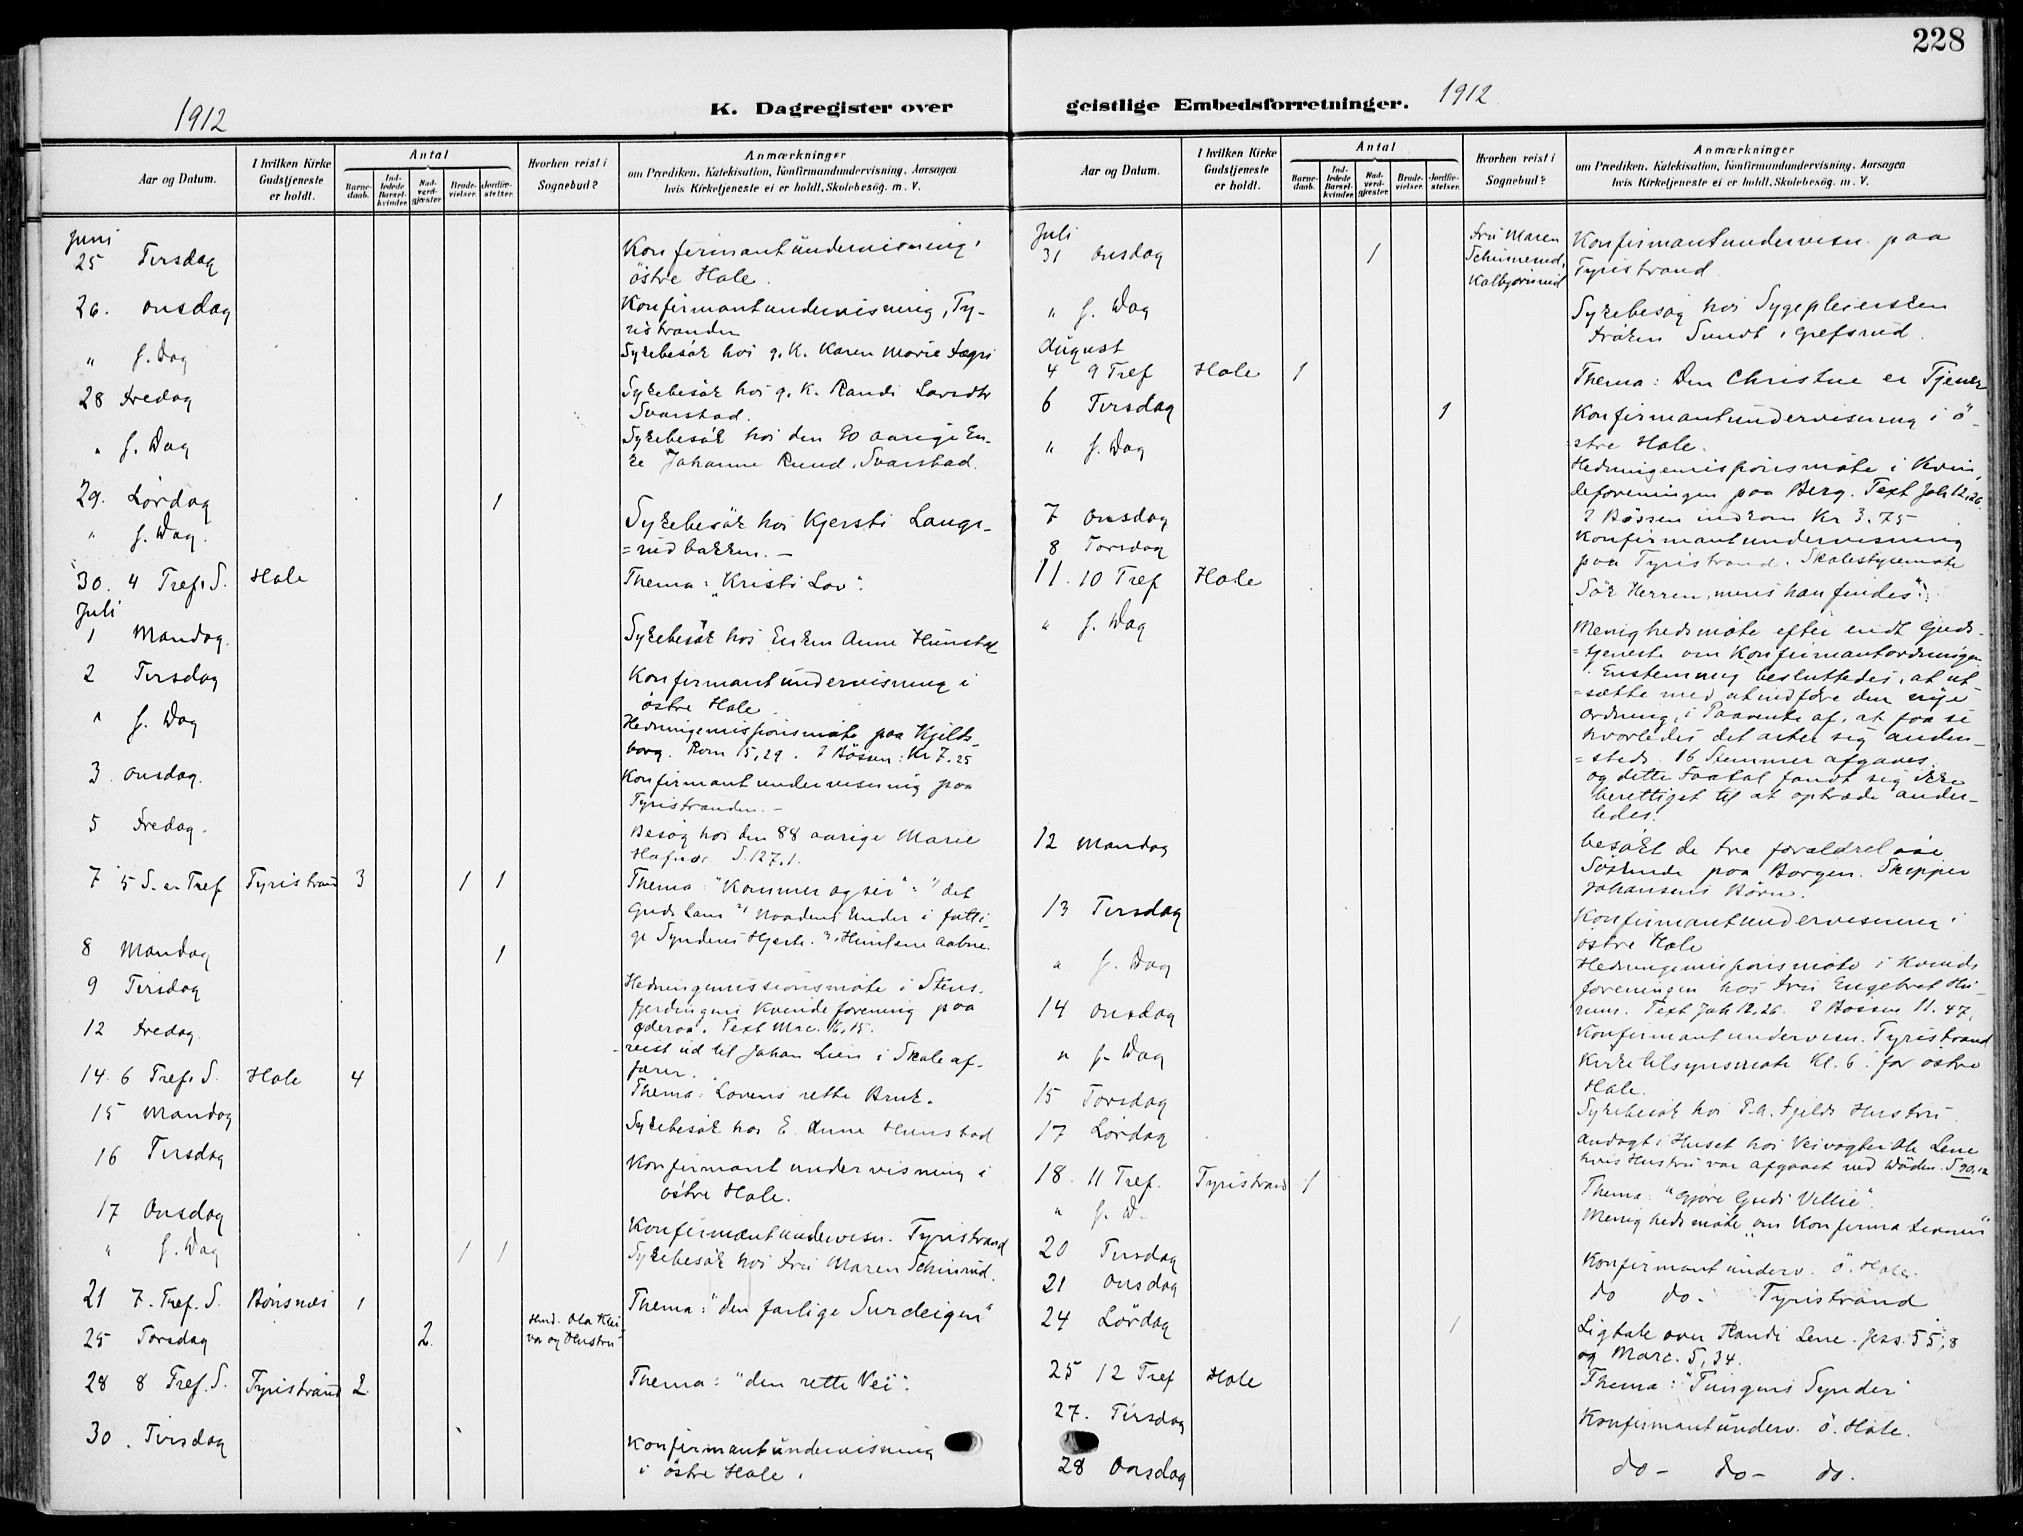 228
1912
K. Dagregister over
geistlige Embedsforretninger.
1912
Aar og Datum.
I hvilken Kirke
Gudstjeneste
er holdt.
Antal
Barne-
daab.
Ind-
ledede
Barsel-
kvinder.
Nad-
verd-
gjæster.
Brude-
vielser.
Jordfæ-
stelser.
Hvorhen reist i
Sognebud?
Anmærkninger
om Prædiken, Katekisation, Konfirmandundervisning, Aarsagen
hvis Kirketjeneste ei er holdt, Skolebesøg. m. V.
Juni
25 Tirsdag Konfirmantundervisning i
östre Hole.
26. onsdag Konfirmantundervisning, Ty-
ristranden
" s. Dag Sykebesök hos g. K. Karen Marie Fægri
28 Fredag Sykebesök hos g. K. Randi Larsdtr
Svarstad.
" s. Dag Sykebesök hos den 90 aarige En-
ke Johanne Rund, Svarstad.
29. Lördag 1
" s. Dag. Sykebesök hos Kjersti Langs-
=rudbakken. -
30. 4 Tref. S. Hole Thema: "Kristi Lov".
Juli
1 Mandag. Sykebesök hos Enken Anne Hunstad
2 Tirsdag Konfirmantundervisning i
östre Hole.
" s. Dag Hedningemissionsmöte paa Kjells-
borg. Rom 15,29. I Bössen: Kr 7.25
3 onsdag. Konfirmantundervisning paa
Tyristranden. -
5 Fredag. Besög hos den 88 aarige Marie
S. 127,1.
7 5 S. e. Tref Tyristrand 3 1 1 Thema: "Kommer og ser": "det
Guds Lam 2, Naadens Under i fatti-
ge Synderes Hjerte. 3, Himlene aabne.
8 Mandag 1
9 Tirsdag Hedningemissionsmöte i Stens-
fjerdingens Kvindeforening paa
Text Mrc. 16,15.
12 Fredag. reist ud til Johan Lien i Skoleaf-
færer.
14. 6 Tref. S. Hole 4 Thema: Lovens rette Bruk.
15 Mandag Sykebesök hos E. Anne Hunstad
16 Tirsdag Konfirmantundervisning i
östre Hole.
17 Onsdag Konfirmantundervisn. Tyristrand
" s. Dag 1 1 Sykebesök hos Fru Maren Schinrud.
21 7. Tref. S. Bönsnes 1 Thema: "den farlige Surdeigen"
25 Torsdag 2. Hmd. Ola Klei
va og Hustru
28 8 Tref. S. Tyristrand 2 Thema: "den rette Vei".
30. Tirsdag Konfirmantundervisning
i östre Hole.
Aar og Datum.
I hvilken Kirke
Gudstjeneste
er holdt.
Antal
Barne-
daab.
Ind-
ledede
Barsel-
kvinder.
Nad-
verd-
gjæster.
Brude-
vielser.
Jordfæ-
stelser.
Hvorhen reist i
Sognebud?
Anmærkninger
om Prædiken, Katekisation, Konfirmandundervisning, Aarsagen
hvis Kirketjeneste ei er holdt, Skolebesøg. m. V.
Juli
31 onsdag 1 Fru Maren Konfirmantundervisn. paa
Tyristrand.
" s. Dag Sykebesög hos Sygepleiersken
Fröken Sundt i Grefsrud.
August
4 9 Tref Hole 1 Thema: Den Christne er Tjener
6 Tirsdag 1 Konfirmantundervisning i ö-
stre Hole.
" s. Dag Hedningemissionsmöte i Kvin-
deforeningen paa Berg. Text Joh 12,26
I Bössen indkom Kr 3.75
7 onsdag Konfirmantundervisning
8 Torsdag paa Tyristrand. Skolestyremöte
11. 10 Tref Hole "Sök Herren, mens han findes".
" s. Dag Menighedsmöte efter endt Guds-
=tjeneste om Konfirmantordningen
Enstemmig besluttedes, at ut-
=sætte med at indföre den nye
Ordning, i Paavente af, at faa se
hvorledes det arter sig anden-
=steds. 16 Stemmer afgaves.
og dette Faatal fandt sig ikke
berettiget til at optræde ander-
ledes.
12 Mandag besökt de tre forældrelöse
Söskende paa Borgen. Skipper
Johansens Börn.
13 Tirsdag Konfirmantundervisning i
östre Hole
" s. Dag Hedningemissionsmöte i Kvinde
foreningen hos Fru Engebret Hu-
rum. Text Joh 12,26. I Bössen 11.47.
14 onsdag Konfirmantundervisn. Tyristrand
" s. Dag Kirketilsynsmöte Kl. 6 for östre
Hole.
15 Torsdag Sykebesök hos P.A. Fjelds Hustru
17 Lördag Andagt i Huset hos Veivogter Ole Lene
hvis Hustru var afgaaet ved Döden. S 90,12
18. 11 Tref. Tyristrand 1 Thema: "Gjöre Guds Villie".
" s. D. Menighedsmöte om "Konfirmationen"
20 Tirsdag Konfirmantunderv. ö. Hole.
21 Onsdag do do. Tyristrand
24 Lördag 1 Ligtale over Randi Lene. Jes. 55,8
og Marc. 5,34.
25 12 Tref Hole Thema: "Tungens Synder"
27. Tirsdag Konfirmantunderv. ö. Hole.
28 Onsdag do - do - do.